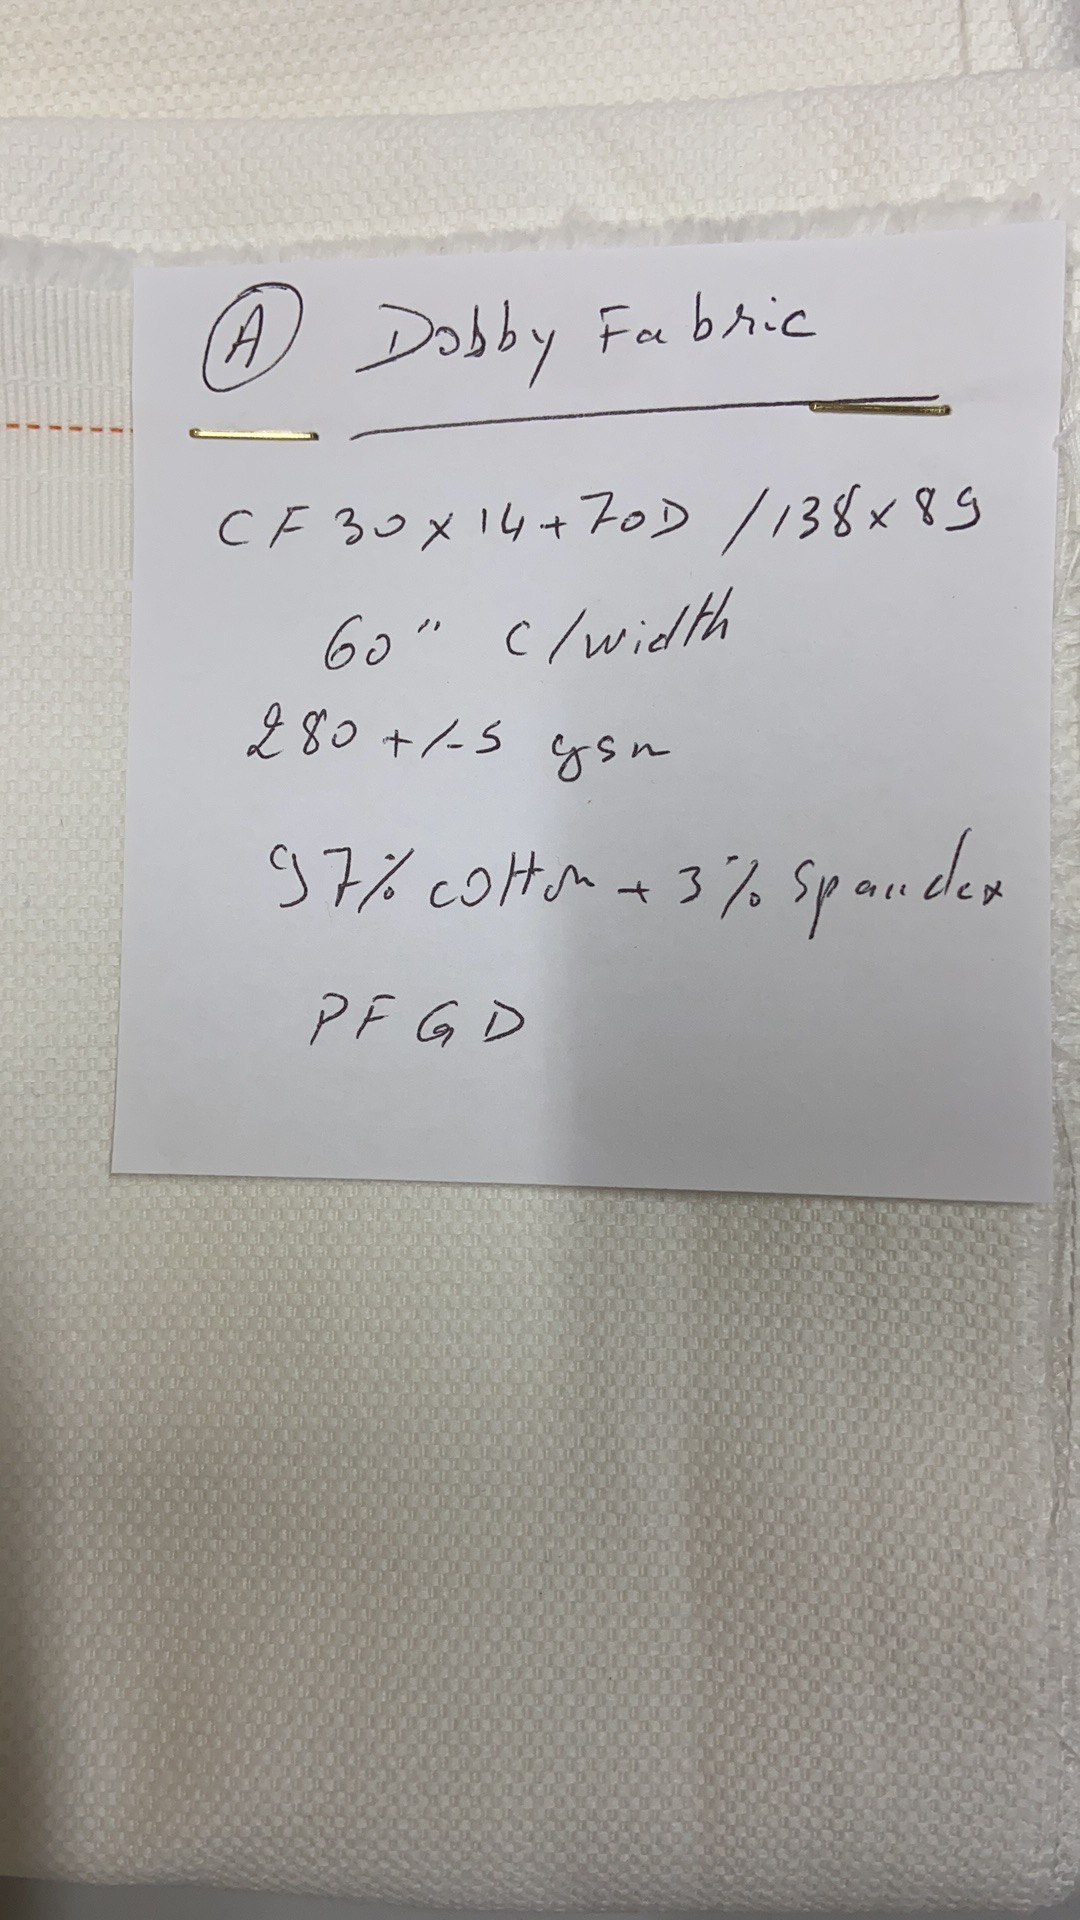 A Dobby Fabric
CF 30 x 14 + 70D / 138 x 89
60" C/width
280 +/-5 gsm
97% cotton + 3% spandex
PFGD